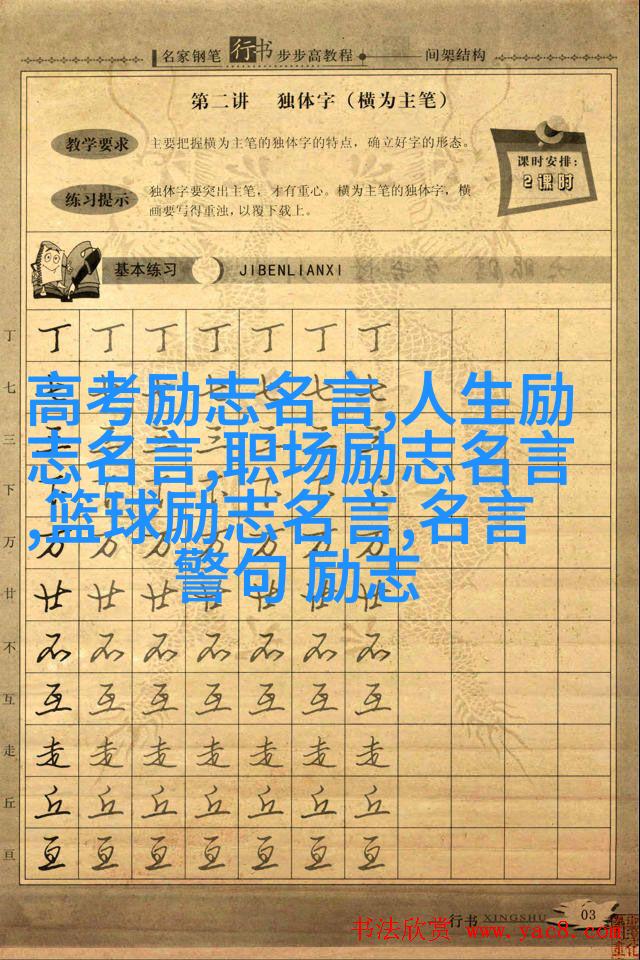 名家钢笔 行书 步步高教程 间架结构
第二讲 独体字（横为主笔）
教学要求
主要把握横为主笔的独体字的特点，确立好字的形态。
练习提示
独体字要突出主笔，才有重心。横为主笔的独体字，横
画要写得重浊，以覆下载上。
课时安排：
2课时
基本练习 JIBENLIANXI
丁 丁 丁 丁 丁 丁 丁 丁
七 七 七 七 七 七 七 七
三 三 三 三 三 三 三 三
下 下 下 下 下 下 下 下
万 万 万 万 万 万 万 万
廿 廿 廿 廿 廿 廿 廿 廿
不 不 不 不 不 不 不 不
互 互 互 互 互 互 互 互
走 走 走 走 走 走 走 走
丘 丘 丘 丘 丘 丘 丘 丘
亘 亘 亘 亘 亘 亘 亘 亘
高考励志名言,人生励
志名言,职场励志名言
,篮球励志名言,名言
警句 励志
行书 XINGSHU 03
书法欣赏 www.yac8.com